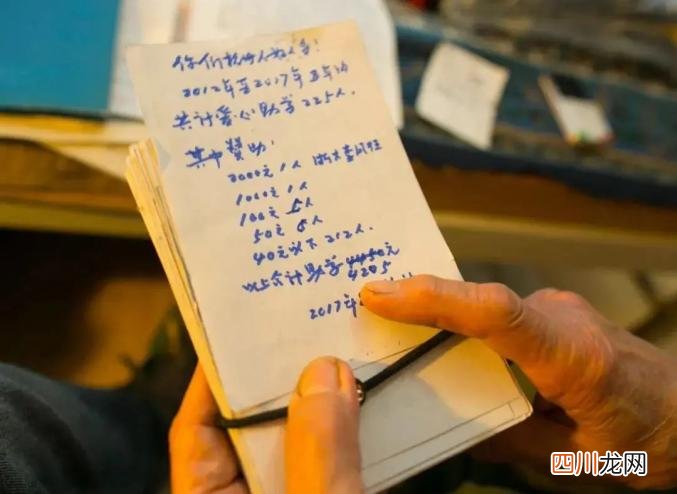 2012年至2017年五年以
共计爱心助学225人.
其中赞助:
2000元1人
1000元1人
100元5人
50元6人
40元以下212人.
以上合计助学4450元
4205
2017年
四川龙网